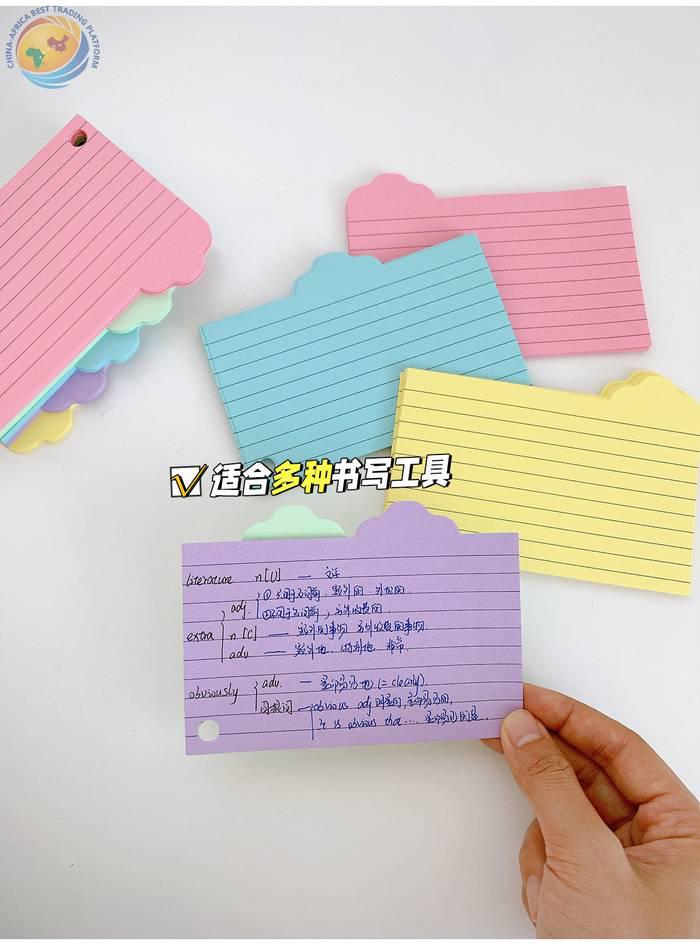 CHINA-AFRICA BEST TRADING PLATFORM
适合多种书写工具
literature n[U] — 文学
adj.
extra n[C] — 额外的事物 另外收费的事物
adv — 额外地, 特别地, 非常
obviously adv. — 显而易见地 (= clearly).
同根词 → obvious adj 明显的, 显而易见的,
It is obvious that .... 显而易见的是...